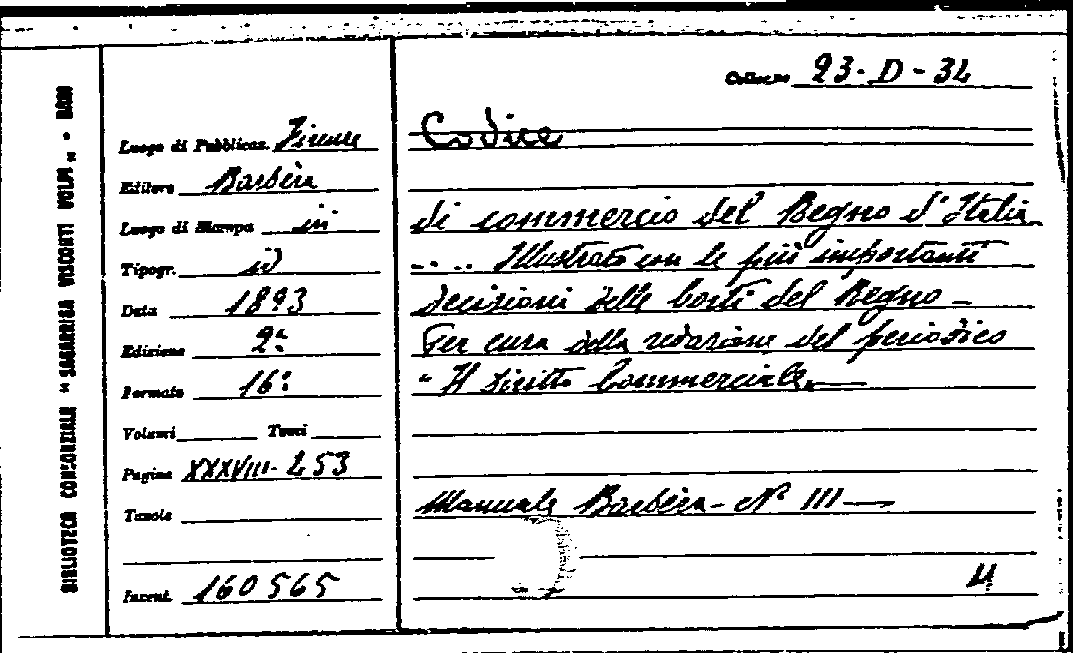 BIBLIOTECA CONSORZIALE "SAGARRIGA VISCONTI VOLPI" - BARI
Collocaz. 93-D-32
Luogo di Pubblicaz. Firenze
Editore Barbèra
Luogo di Stampa ivi
Tipogr. id
Data 1893
Edizione 2ª
Formato 16º
Volumi Tomi
Pagine XXXVIII-253
Tavole
Invent. 160565
Codice
di commercio del Regno d'Italia
.... Illustrato con le più importanti
decisioni delle Corti del Regno -
Per cura della redazione del periodico
"Il Diritto Commerciale" -
Manuale Barbèra - Nº III -